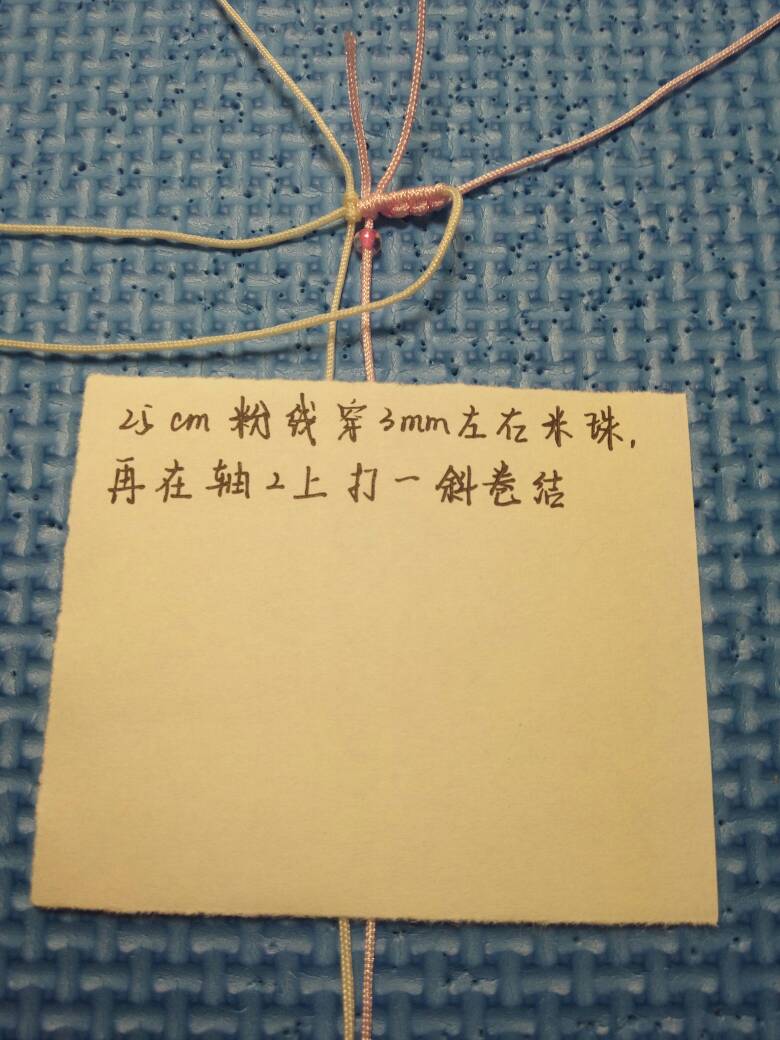 25cm粉线穿3mm左右米珠,
再在轴2上打一斜卷结